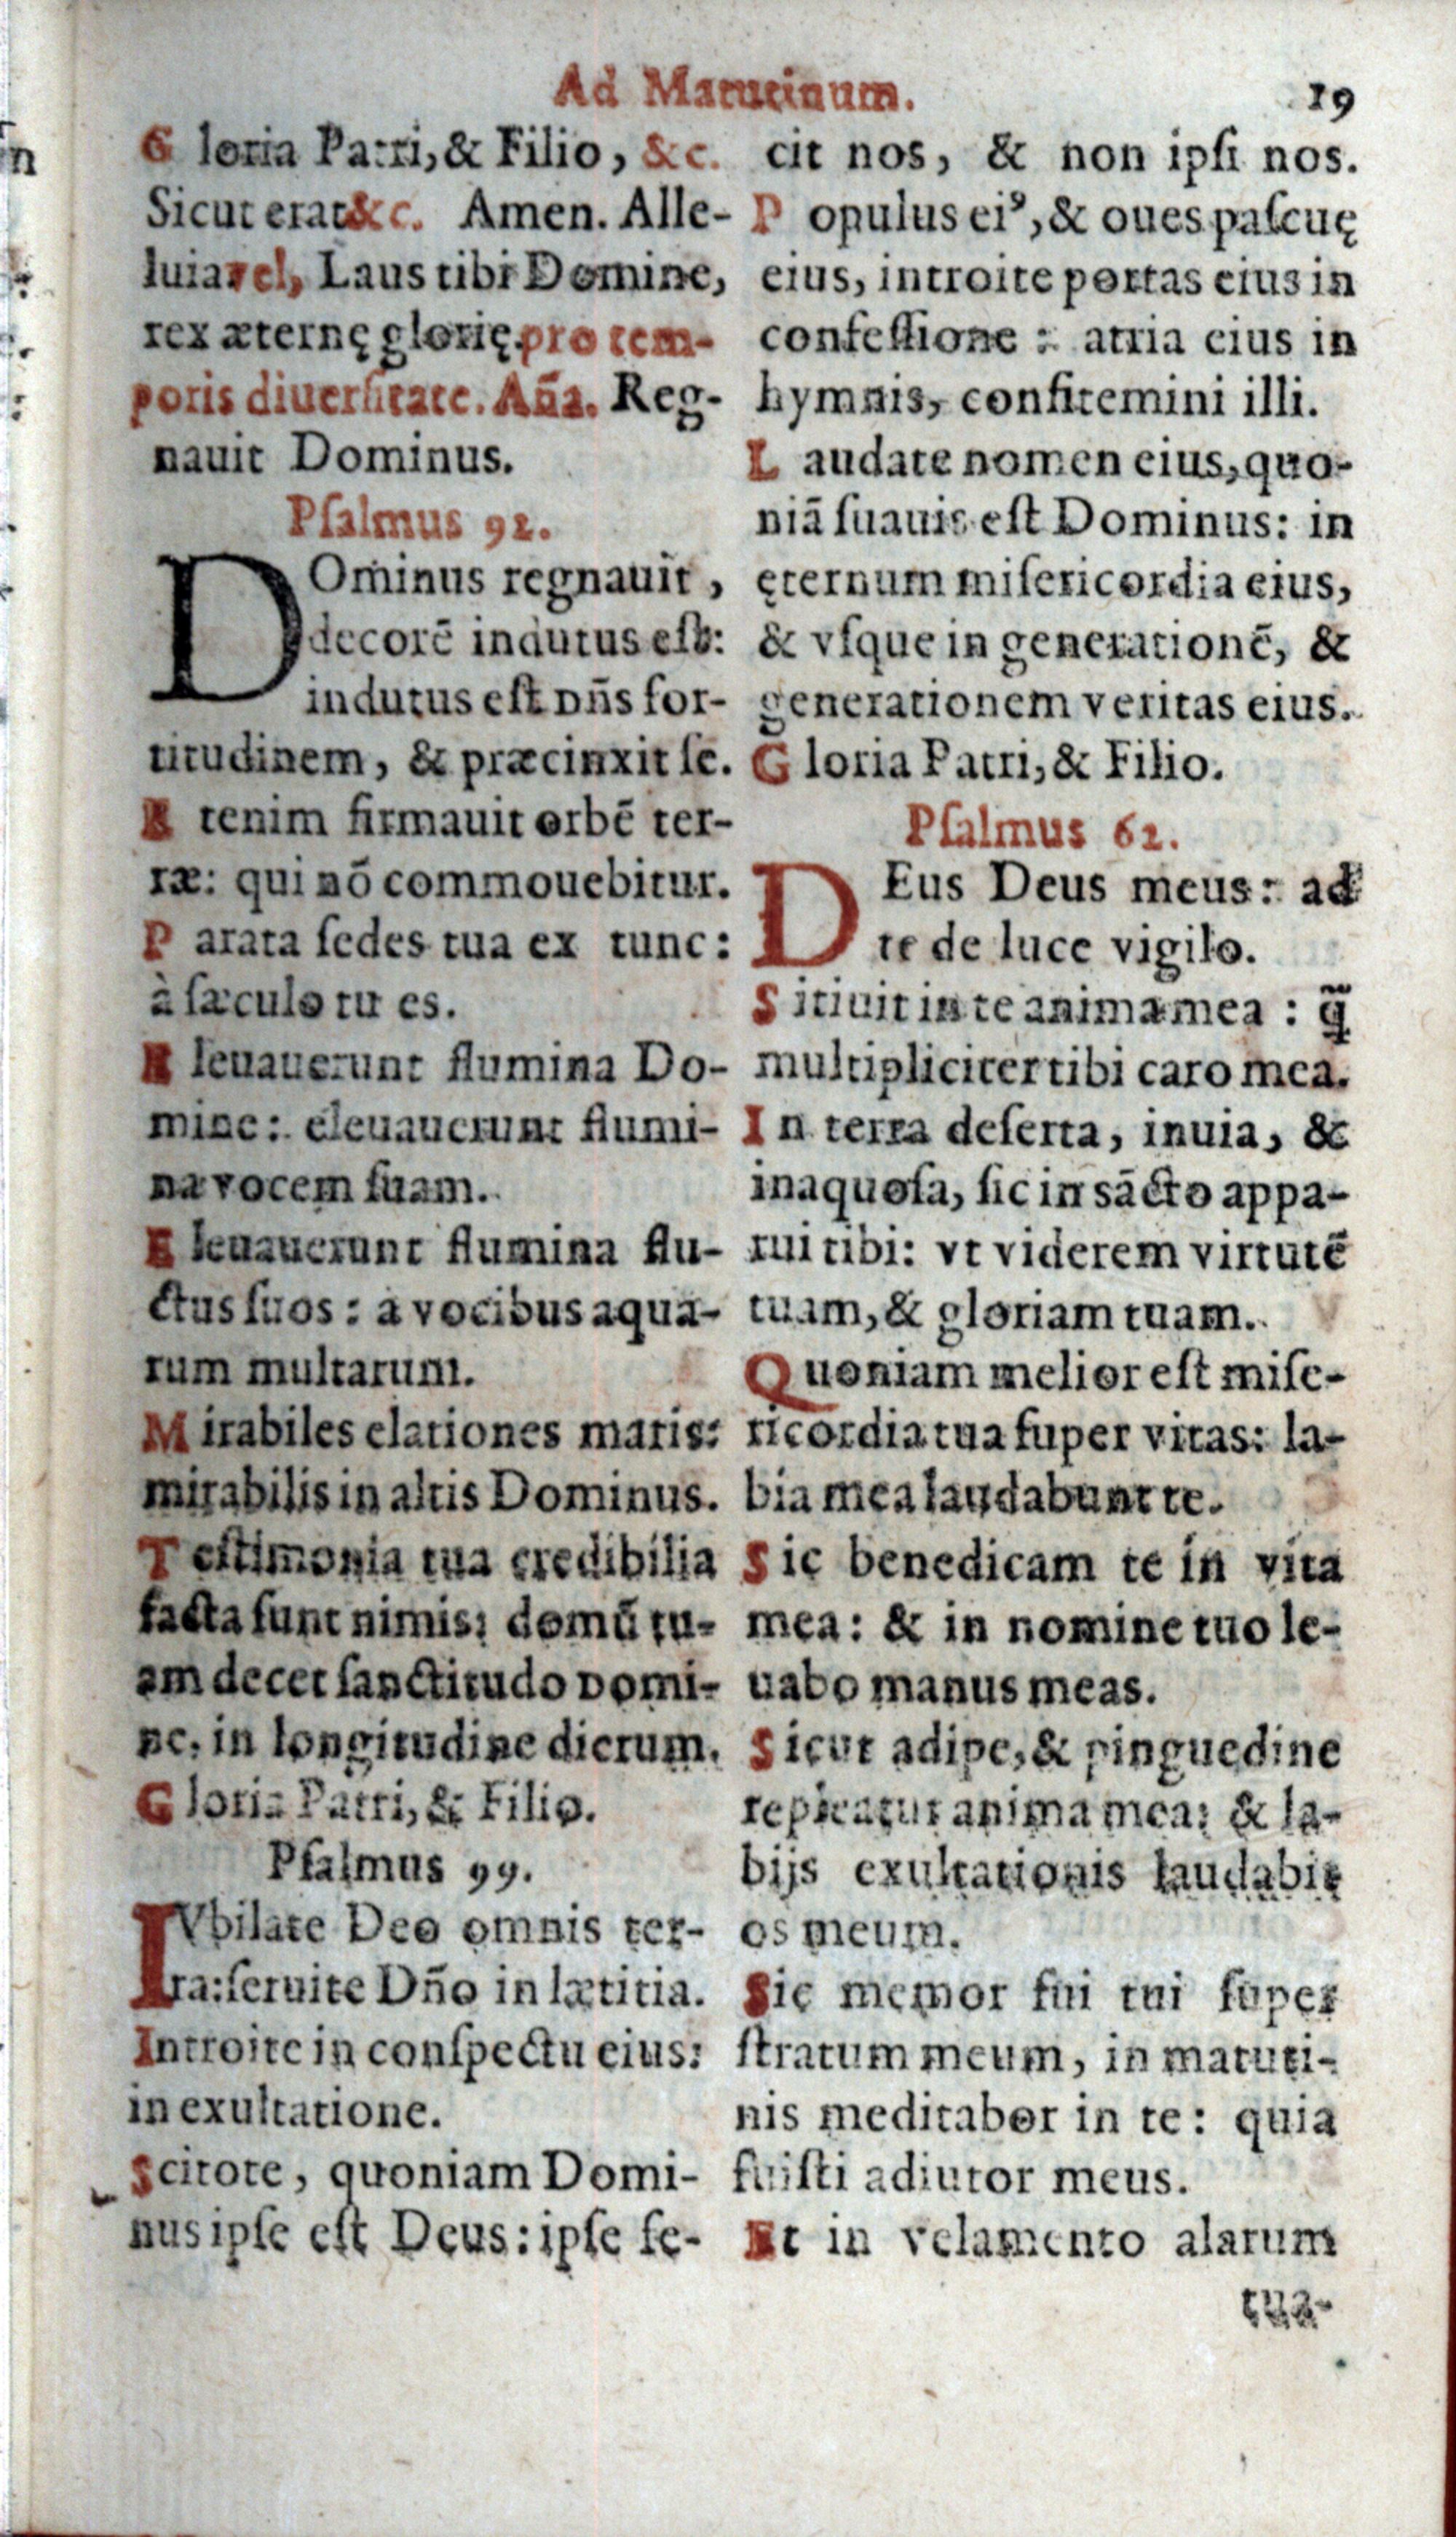 Ad Matutinum.
19
G loria Patri, & Filio, &c.
Sicut erat &c. Amen. Alle-
luia vel, Laus tibi Domine,
rex æternę glorię. pro tem-
poris diuersitate. Añа. Reg-
nauit Dominus.
Pſalmus 92.
DOminus regnauit,
decorē indutus eſt:
indutus eſt Dñs for-
titudinem, & præcinxit ſe.
E tenim firmauit orbē ter-
ræ: qui nō commouebitur.
P arata ſedes tua ex tunc:
à ſæculo tu es.
E leuauerunt flumina Do-
mine: eleuauerunt flumi-
na vocem ſuam.
E leuauerunt flumina flu-
ctus ſuos: a vocibus aqua-
rum multarum.
M irabiles elationes maris:
mirabilis in altis Dominus.
T eſtimonia tua credibilia
facta ſunt nimis: domū tu-
am decet ſanctitudo Domi-
ne, in longitudine dierum.
G loria Patri, & Filio.
Pſalmus 99.
IVbilate Deo omnis ter-
ra: ſeruite Dño in lætitia.
Introite in conſpectu eius:
in exultatione.
Scitote, quoniam Domi-
nus ipſe eſt Deus: ipſe fe-
cit nos, & non ipſi nos.
P opulus eiꝰ, & oues paſcuę
eius, introite portas eius in
confeſſione: atria eius in
hymnis, confitemini illi.
L audate nomen eius, quo-
niā ſuauis eſt Dominus: in
ęternum miſericordia eius,
& vſque in generationē, &
generationem veritas eius.
G loria Patri, & Filio.
Pſalmus 62.
DEus Deus meus: ad
te de luce vigilo.
S itiuit in te anima mea: q̃
multipliciter tibi caro mea.
I n terra deſerta, inuia, &
inaquoſa, ſic in sācto appa-
rui tibi: vt viderem virtutē
tuam, & gloriam tuam.
Q uoniam melior eſt miſe-
ricordia tua ſuper vitas: la-
bia mea laudabunt te.
S ic benedicam te in vita
mea: & in nomine tuo le-
uabo manus meas.
S icut adipe, & pinguedine
repleatur anima mea: & la-
bijs exultationis laudabit
os meum.
Sic memor fui tui ſuper
ſtratum meum, in matuti-
nis meditabor in te: quia
fuiſti adiutor meus.
Et in velamento alarum
tua-